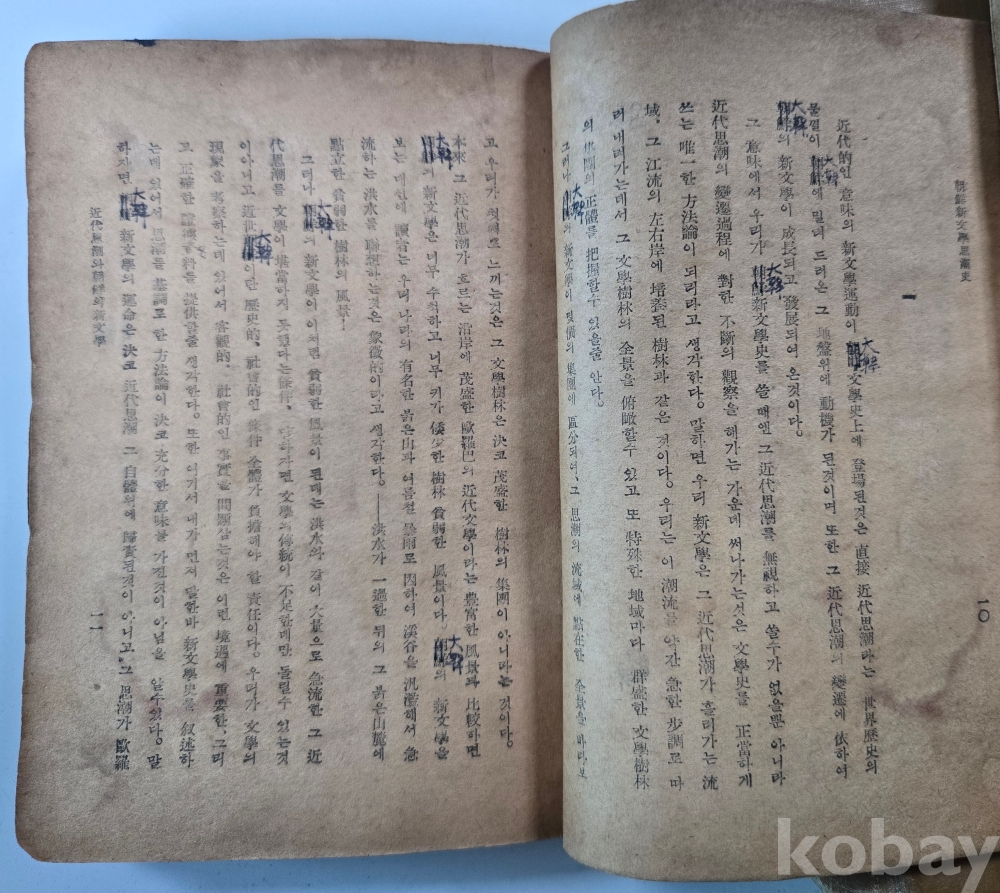 朝鮮新文學思潮史
一
近代的인 意味의 新文學運動이 大韓文學史上에 登場된것은 直接 近代思潮라는 世界歷史의
물껼이 大韓에 밀려 드러온 그 地盤위에 動機가 된것이며 또한 그 近代思潮의 變遷에 依하여
大韓의 新文學이 成長되고 發展되여 온것이다.
그 意味에서 우리가 大韓新文學史를 쓸 때엔 그 近代思潮를 無視하고 쓸수가 없을뿐 아니라
近代思潮의 變遷過程에 對한 不斷의 觀察을 해가는 가운데 써나가는것은 文學史를 正當하게
쓰는 唯一한 方法論이 되리라고 생각한다. 말하면 우리 新文學은 그 近代思潮가 흘러가는 流
域, 그 江流의 左右岸에 培養된 樹林과 같은 것이다. 우리는 이 潮流를 약간 急한 步調로 따
러 내려가는데서 그 文學樹林의 全景을 俯瞰할수 있고 또 特殊한 地域마다 群盛한 文學樹林
의 集團의 正體를 把握할수 있을줄 안다.
그러나 大韓의 新文學이 集團에 區分되여, 그 思潮의 流域에 點在한 全景을 바라보
一〇
고 우리가 첫째로 느끼는것은 그 文學樹林은 決코 茂盛한 樹林의 集團이 아니라는 것이다.
本來 그 近代思潮가 흐르는 沿岸에 茂盛한 歐羅巴의 近代文學이라는 豊富한 風景과 比較하면
大韓의 新文學은 너무 수척하고 너무 키가 倭少한 樹林 貧弱한 風景이다 大韓의 新文學을
보는 데선에 讀者는 우리 나라의 有名한 붉은山과 여름철 暴雨로 因하여 溪谷을 汎濫해서 急
流하는 洪水를 聯想하는것은 象徵的이라고 생각한다.——洪水가 一過한 뒤의 그 붉은山麓에
點立한 貧弱한 樹林의 風景!
그러나 大韓의 新文學이 이처럼 貧弱한 風景이 된데는 洪水와 같이 大量으로 急流한 그 近
代思潮를 文學이 堪當하지 못했다는 條件, 말하자면 文學의 傳統이 不足한데만 돌릴수 있는것
이아니고 近世 大韓이란 歷史的, 社會的인 條件 全體가 負擔해야 할 責任이다. 우리가 文學의
現象을 考察하는데 있어서 客觀的, 社會的인 事實을 問題삼는것은 이런 境遇에 重要한, 그리
고 正確한 論據資料를 提供할줄 생각한다. 또한 여기서 내가 먼저 말한바 新文學史를 叙述하
는데 있어서 思潮를 基調로 한 方法論이 決코 充分한 意味를 가진것이 아님을 알수있다. 말
하자면 大韓 新文學의 運命은 決코 近代思潮 그 自體위에 歸責된것이 아니고, 그 思潮가 歐羅
近代思潮와 朝鮮의 新文學
一一
kobay